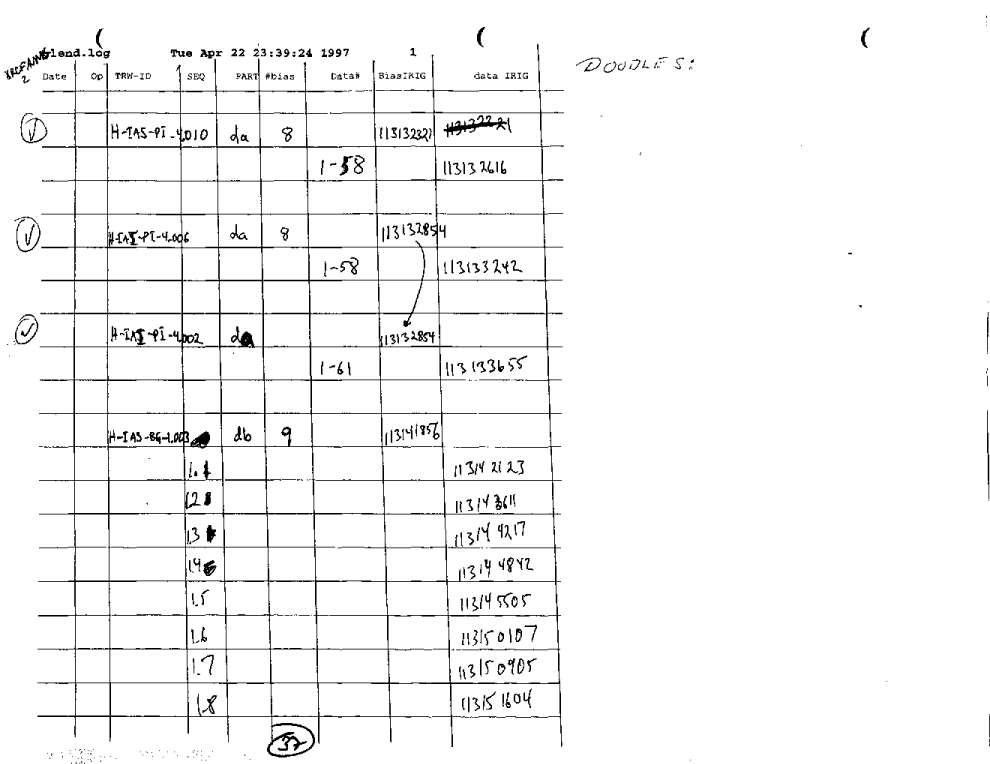 lend.log Tue Apr 22 23:39:24 1997 1
DOODLES:
Date Op TRW-ID SEQ PART #bias Data# BiasIRIG data IRIG
H-IAS-PI-4.010 da 8
1-58 113132616
H-IAI-PI-4.006 da 8 113132854
1-58 113133242
H-IAI-PI-4.002 da 113132854
1-61 113133655
H-IAS-BG-1.003 db 9 113141856
1.1 113142123
1.2 113143611
1.3 113144217
1.4 113144842
1.5 113145505
1.6 113150107
1.7 113150905
1.8 113151604
37